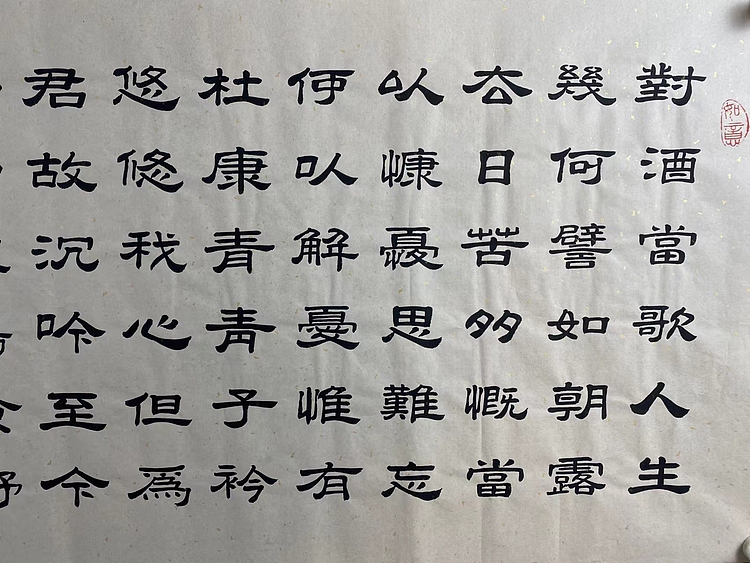 如意
對酒當歌人生
幾何譬如朝露
去日苦多慨當
以慷憂思難忘
何以解憂惟有
杜康青青子衿
悠悠我心但爲
君故沉吟至今